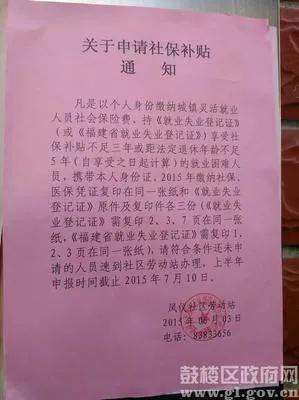 关于申请社保补贴
通知
凡是以个人身份缴纳城镇灵活就业
人员社会保险费、持《就业失业登记证》
(或《福建省就业失业登记证》)享受社保
补贴不足三年或距法定退休年龄不足
5年(自享受之日起计算)的就业困难人
员,携带本人身份证、2015年缴纳社保、
医保凭证复印在同一张纸和《就业失
业登记证》原件及复印件各三份(《就
业失业登记证》需复印2、3、7页在同一张
纸,《福建省就业失业登记证》需复印1、
2、3页在同一张纸),请符合条件还未申
请的人员速到社区劳动站办理,上半年
申报时间截止2015年7月10日。
凤仪社区劳动站
2015年06月03日
电话:83833656
鼓楼区政府网
www.gl.gov.cn